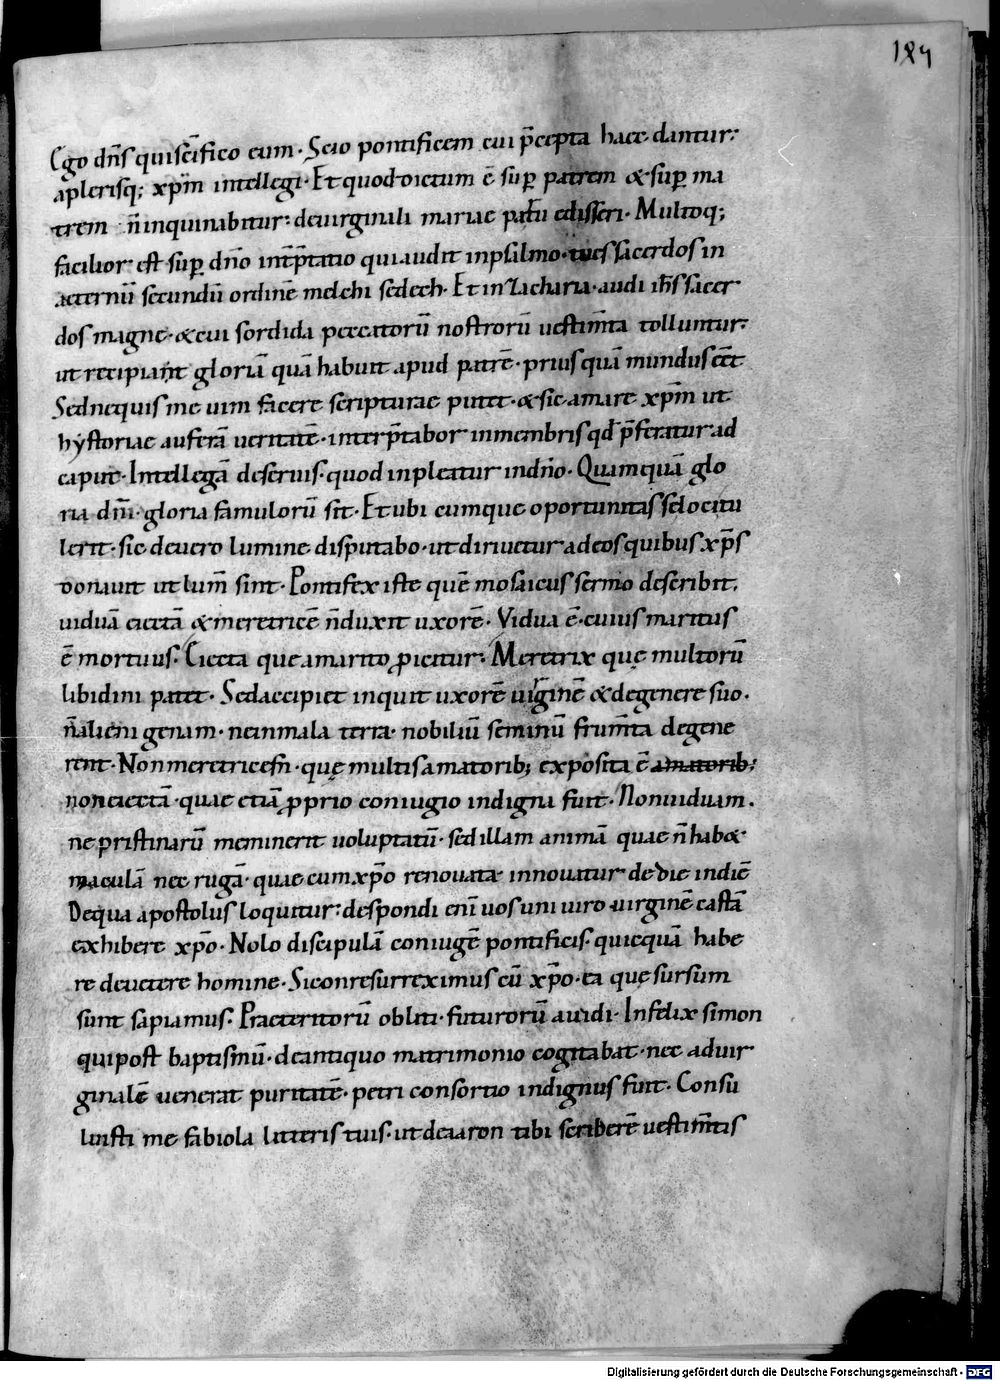 184
Ego dn̄s qui scīfico eum · Scio pontificem cui p̄cepta haec dantur:
aplerisq; xp̄m intellegi · Et quod dictum ē sup̱ patrem & sup̱ ma
trem n̄ inquinabitur: de uirginali mariae partu edisseri · Multoq;
facilior est sup̱ dn̄o int̄p̄tatio qui audit in psalmo · tu es sacerdos in
aeternū secundū ordinē melchisedech · Et in Zacharia · audi ih̄s sacer
dos magne · & cui sordida peccatorū nostrorū uestim̄ta tolluntur:
ut recipiant gloriā quā habuit apud patrē · prius quā mundus eēt
Sed nequis me uim facere scripturae putet · & sic amare xp̄m ut
hystoriae auferā ueritatē · interp̄tabor in membris qd̄ p̄feratur ad
caput · Intellegā de seruis · quod inpleatur in dn̄o · Quamquā glo
ria dn̄i · gloria famulorū sit · Et ubi cumque oportunitas se loci tu
lerit · sic de uero lumine disputabo · ut diriuetur ad eos quibus xp̄s
donauit ut lum̄ sint · Pontifex iste quē mosaicus sermo describit,
uiduā eiectā & meretricē n̄ duxit uxorē · Vidua ē · cuius maritus
ē mortuus · Eiecta que a marito ꝓicitur · Meretrix quę multorū
libidini patet · Sed accipiet inquit uxorē uirginē & de genere suo ·
n̄ alienigenam · ne in mala terra · nobiliū seminū frum̄ta degene
rent · Non meretricem · quę multis amatorib; exposita ē amatorib;
non eiectā · quae etiā ꝓprio coniugio indigna fuit · Non uiduam ·
ne pristinarū meminerit uoluptatū · sed illam animā quae n̄ hab&
maculā nec rugā · quae cum xp̄o renouata innouatur de die in diē
De qua apostolus loquitur: despondi eni uos uni uiro uirginē castā
exhibere xp̄o · Nolo discipulā coniugē pontificis · quicquā habe
re de uetere homine · Si conresurreximus cū xp̄o · ea quę sursum
sunt sapiamus · Praeteritorū obliti · futurorū auidi · Infelix simon
qui post baptismū · de antiquo matrimonio cogitabat · nec ad uir
ginalē uenerat puritatē · petri consortio indignus fuit · Consu
luisti me fabiola litteris tuis · ut de aaron tibi scriberē uestim̄tis
Digitalisierung gefördert durch die Deutsche Forschungsgemeinschaft - DFG